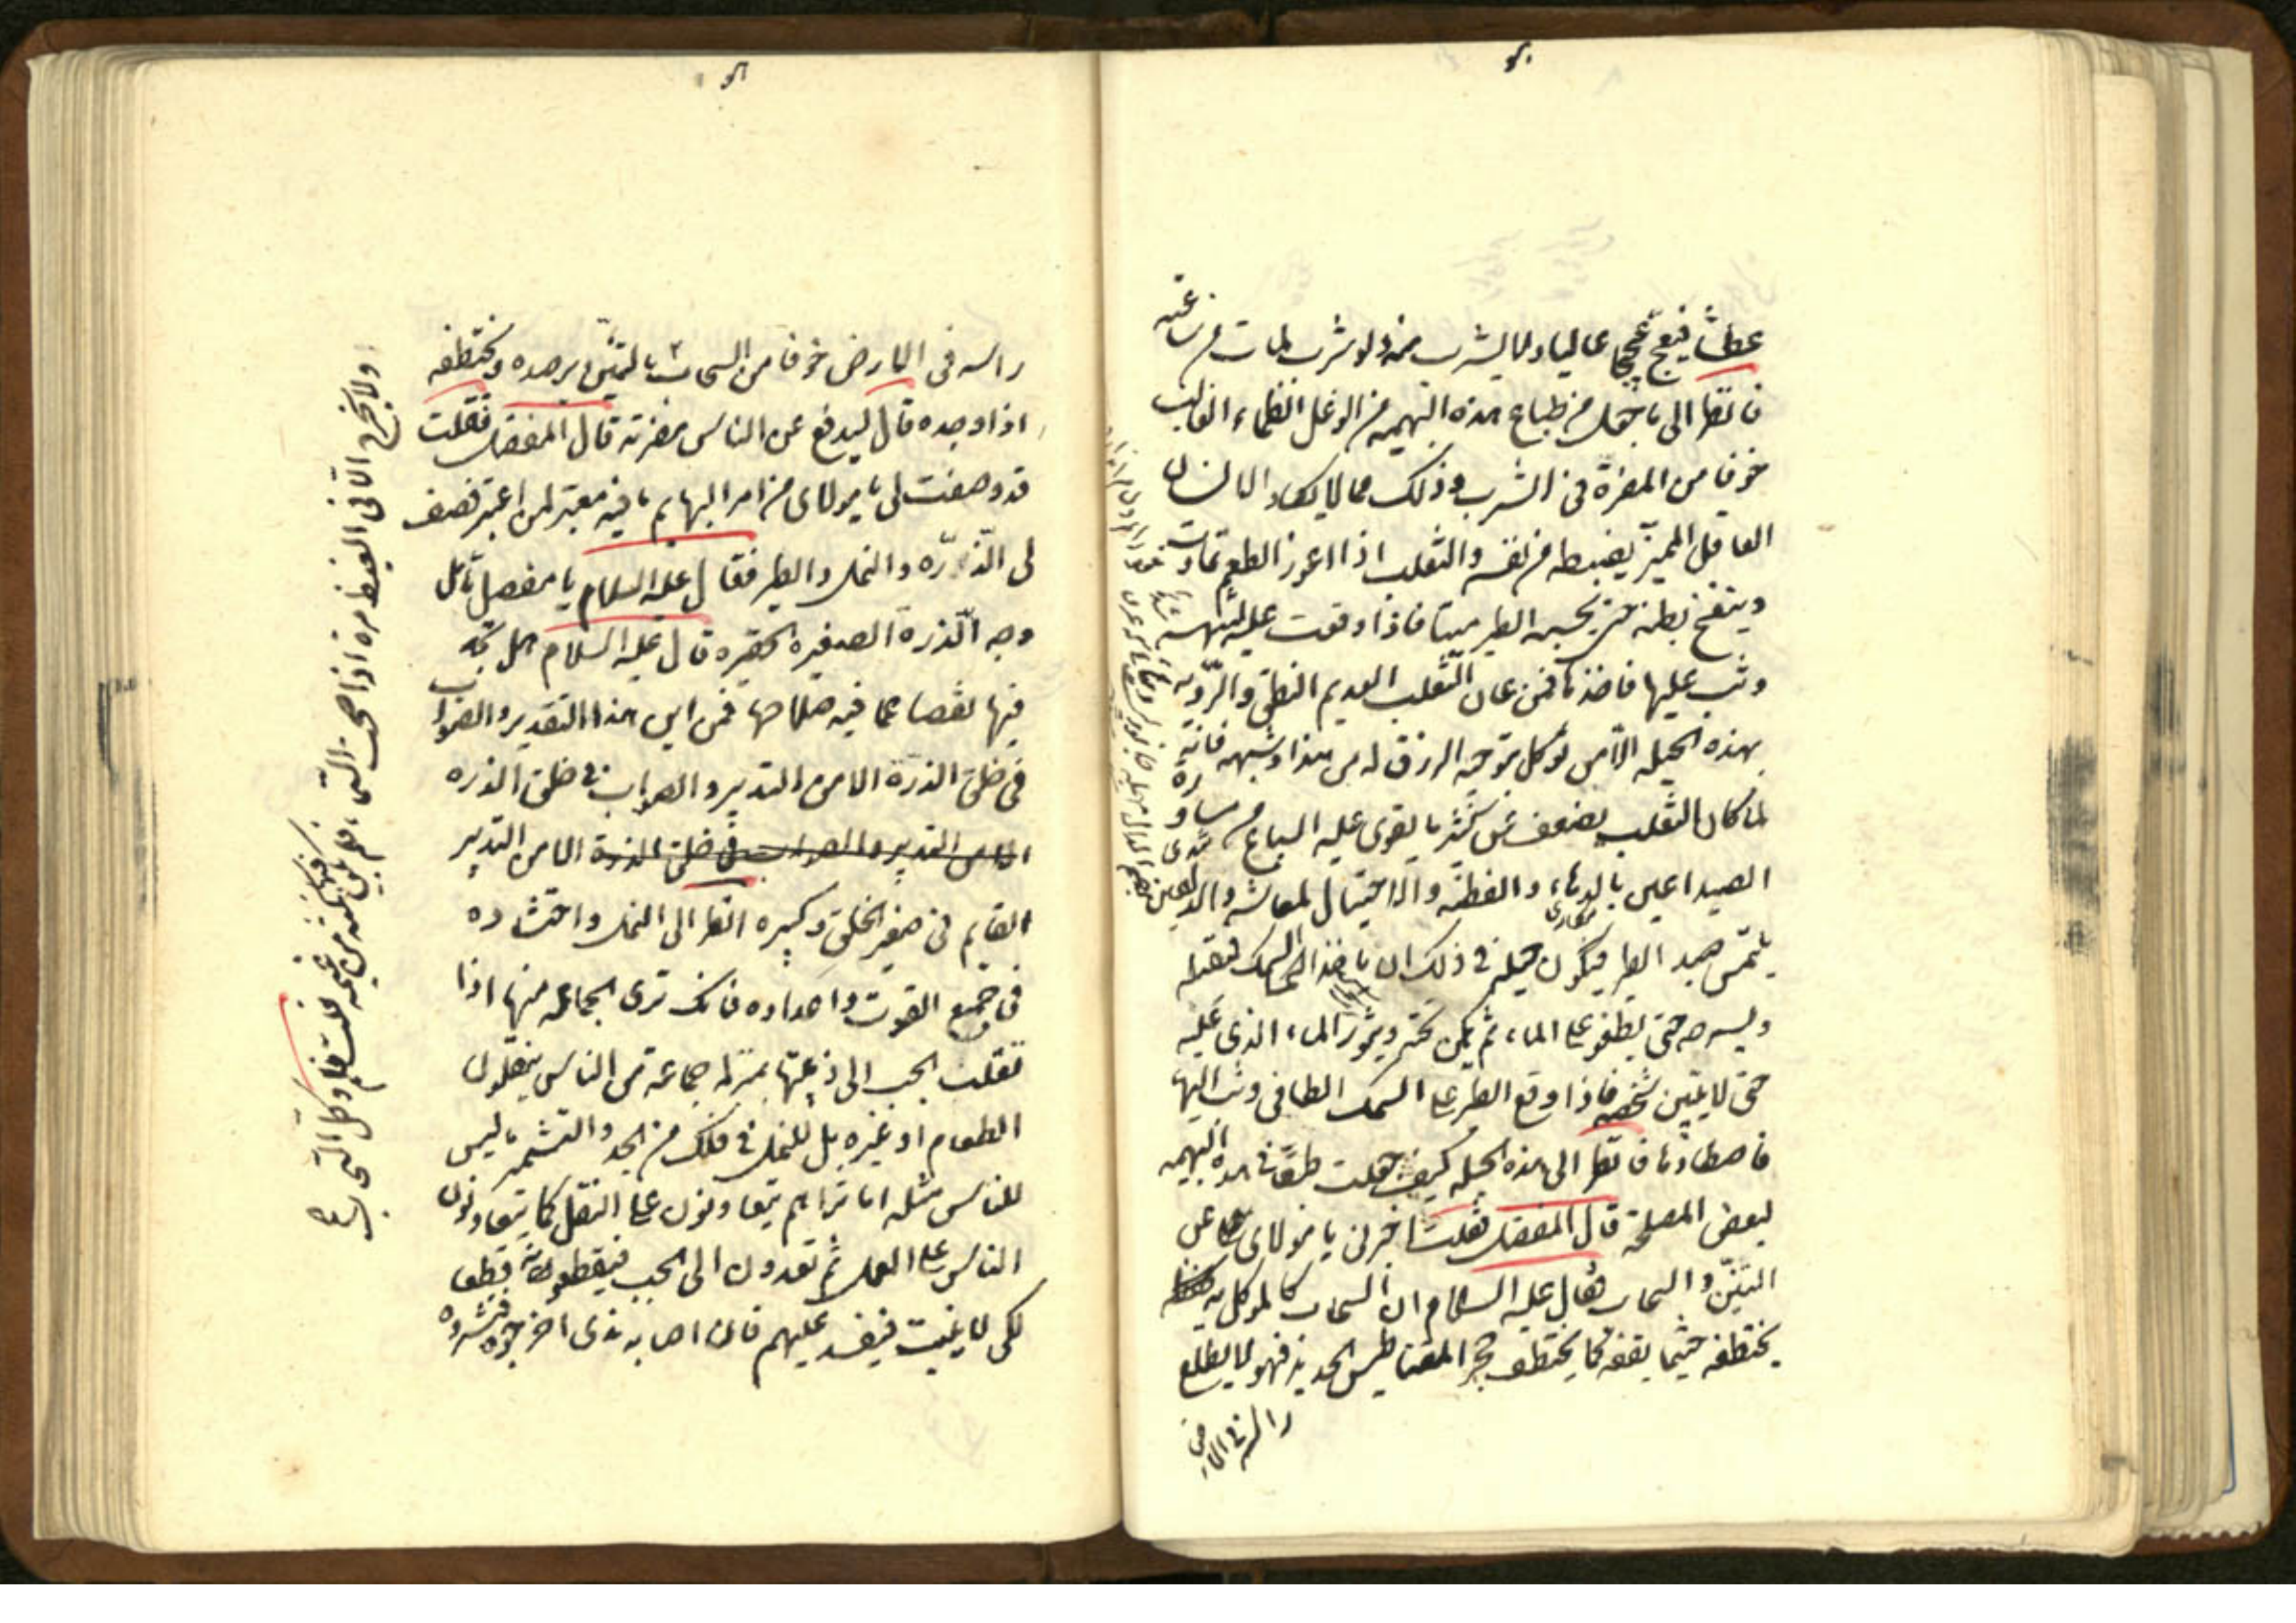 عطشا فيعج عجيجا عاليا ولا يشرب منه ولو شرب لمات من ساعته
فانظر الى ما جعل من طباع هذه البهيمه من الوغل الظماء الغالب
خوفا من المضرة فى الشرب وذلك مما لا يكاد الانسان
العاقل المميز يضبطه من نفسه والثعلب اذا اعوز الطعم تماوت
وينفخ بطنه حتى يحسبه الطير ميتا فاذا وقعت عليه لتنهشه
وثب عليها فاخذها فمن عان الثعلب العديم النطق والروية
بهذه الحيله الا من توكل بتوجيه الرزق له من هذا وشبهه فانه
لما كان الثعلب يضعف عن كثير ما يقوى عليه السباع من مساورة
الصيد اعين بالدهاء والفطنة والاحتيال لمعاشه والدلفين
يلتمس صيد الطير فيكون حيلته فى ذلك ان ياخذ السمك فيقتله
ويسرحه حتى يطفو على الماء ثم يكمن تحته ويثور الماء الذى عليه
حتى لا يتبين شخصه فاذا وقع الطير على السمك الطافى وثب اليها
فاصطادها فانظر الى هذه الحيلة كيف جعلت طبعا فى هذه البهيمه
لبعض المصلحة قال المفضل فقلت اخبرنى يا مولاى عن
التنين والسحاب فقال عليه السلام ان السحاب كالموكل به
يختطفه حيثما يقفه كما يختطف حجر المقناطيس الحديد فهو لا يطلع
راسه فى الارض
راسه فى الارض خوفا من السحاب
اذا وجده قال ليدفع عن الناس مضرته قال المفضل فقلت
قد وصفت لى يا مولاى من امر البهايم ما فيه معتبر لمن اعتبر فصف
لى الذرة والنمل والطير فقال عليه السلام يا مفضل تامل
وجه الذرة الصغيرة الحقيرة قال عليه السلام هل تجد
فيها نقصا عما فيه صلاحها فمن اين هذا التقدير والصواب
فى خلق الذرة الا من التدبير والصواب فى خلق الذره
الا من التقدير والصواب فى خلق الذرة الا من التدبير
القايم فى صغير الخلق وكبيره انظر الى النمل واحتشاده
فى جميع القوت واعداده فانك ترى الجماعه منها اذا
نقلت الحب الى زبيتها بمنزلة جماعة من الناس ينقلون
الطعام او غيره بل للنمل فى ذلك من الجد والتشمير ما ليس
للناس مثله اما تراهم يتعاونون على النقل كما يتعاون
الناس على العمل ثم تعدون الى الحب فيقطعونه قطعا
لكى لا ينبت فيفسد عليهم فان اصابه ندى اخرجوه فنشروه
ولا يخرج الا فى القيظ مرة اذا صحت السماء